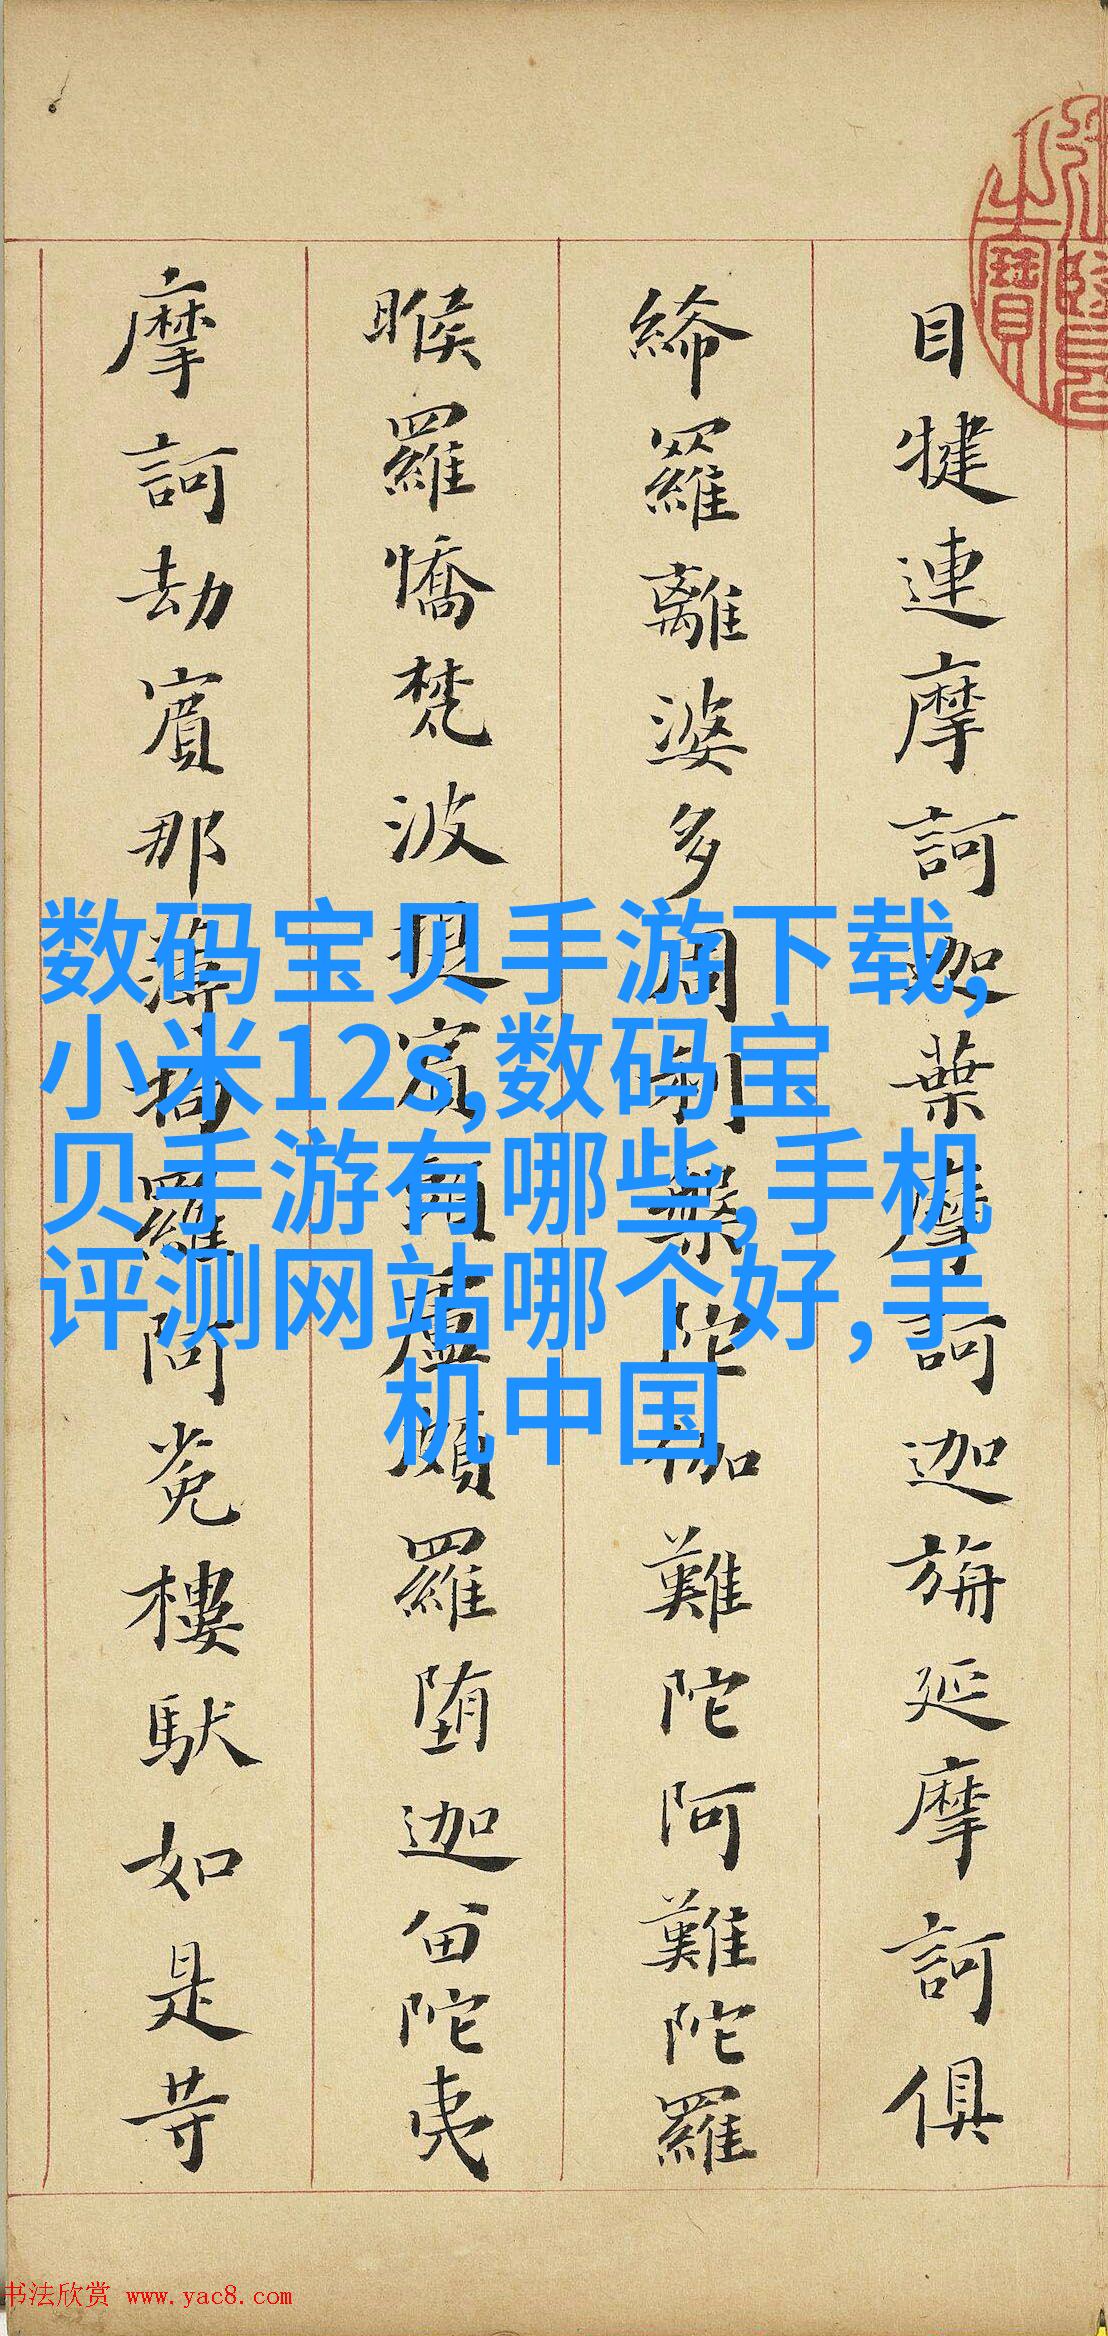 目犍連摩訶迦葉摩訶迦旃延摩訶俱
絺羅離婆多周利槃陀伽難陀阿難陀羅
睺羅憍梵波提賓頭盧頗羅堕迦留陀夷
摩訶劫賓那薄拘羅阿㝹樓馱如是等
之寶
数码宝贝手游下载,
小米12s,数码宝
贝手游有哪些,手机
评测网站哪个好,手
机中国
书法欣赏 www.yac8.com